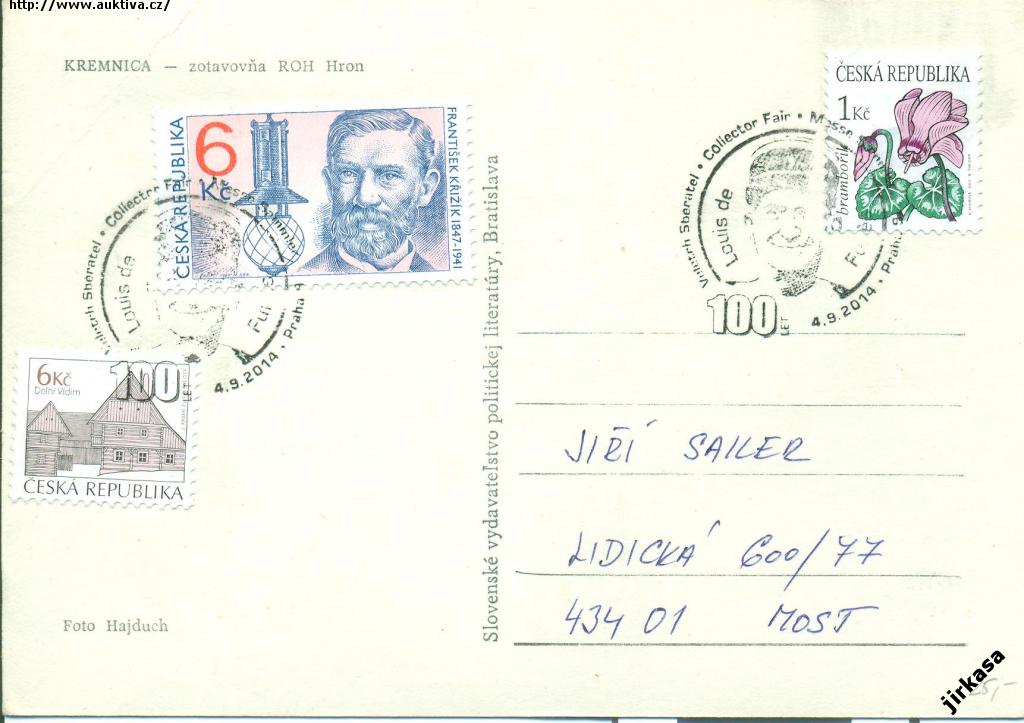 http://www.auktiva.cz/
KREMNICA — zotavovňa ROH Hron
ČESKÁ REPUBLIKA
6
Kč
FRANTIŠEK KŘIŽÍK 1847-1941
Sběratel • Collector Fair • Messe Sammler
Louis de
Fun
100
LET
4.9.2014 • Praha 9
6Kč
Dolní Vidim
ČESKÁ REPUBLIKA
Slovenské vydavateľstvo politickej literatúry, Bratislava
ČESKÁ REPUBLIKA
1Kč
brambořík
Veletrh Sběratel • Collector Fair • Messe
Louis de
Fu
100
LET
4.9.2014 • Praha 9
JIŘÍ SAILER
LIDICKÁ 600/77
434 01 MOST
Foto Hajduch
25,-
jirkasa